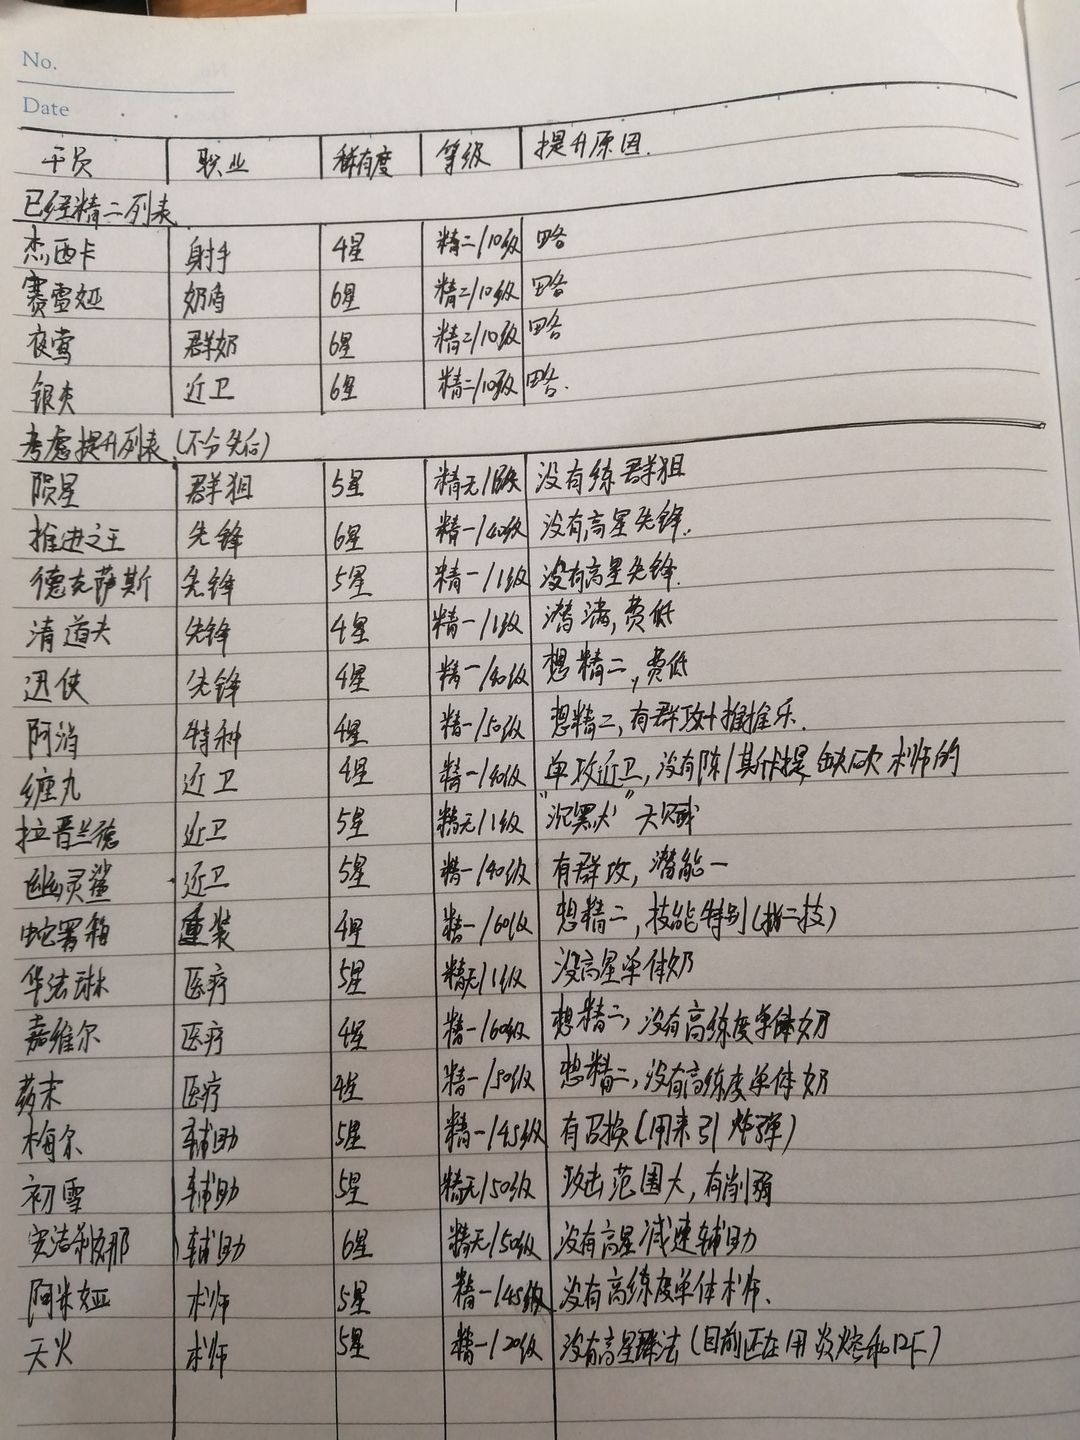 No.
Date
干员 职业 稀有度 等级 提升原因.
已经精二列表
杰西卡 射手 4星 精二/10级 略
赛雷娅 奶盾 6星 精二/10级 略
夜莺 群奶 6星 精二/10级 略
银灰 近卫 6星 精二/10级 略.
考虑提升列表(不分先后)
陨星 群狙 5星 精无/级 没有练群狙
推进之王 先锋 6星 精一/40级 没有高星先锋.
德克萨斯 先锋 5星 精一/1级 没有高星先锋.
清道夫 先锋 4星 精一/1级 潜满,费低
迅侠 先锋 4星 精一/40级 想精二,费低
阿消 特种 4星 精一/50级 想精二,有群攻+推推乐.
缠丸 近卫 4星 精一/40级 单攻近卫,没有陈/斯卡提,缺砍术师的
拉普兰德 近卫 5星 精无/1级 "沉默犬"天赋
幽灵鲨 近卫 5星 精一/40级 有群攻,潜能一
蛇屠箱 重装 4星 精一/60级 想精二,技能特别(指二技)
华法琳 医疗 5星 精无/1级 没高星单体奶
嘉维尔 医疗 4星 精一/60级 想精二,没有高练度单体奶
末 医疗 4星 精一/50级 想精二,没有高练度单体奶
梅尔 辅助 5星 精一/45级 有召换(用来引炸弹)
初雪 辅助 5星 精无/50级 攻击范围大,有削弱
安洁莉娜 辅助 6星 精无/50级 没有高星减速辅助
阿米娅 术师 5星 精一/45级 没有高练度单体术师.
天火 术师 5星 精一/20级 没有高星群法(目前还在用炎熔和12F)